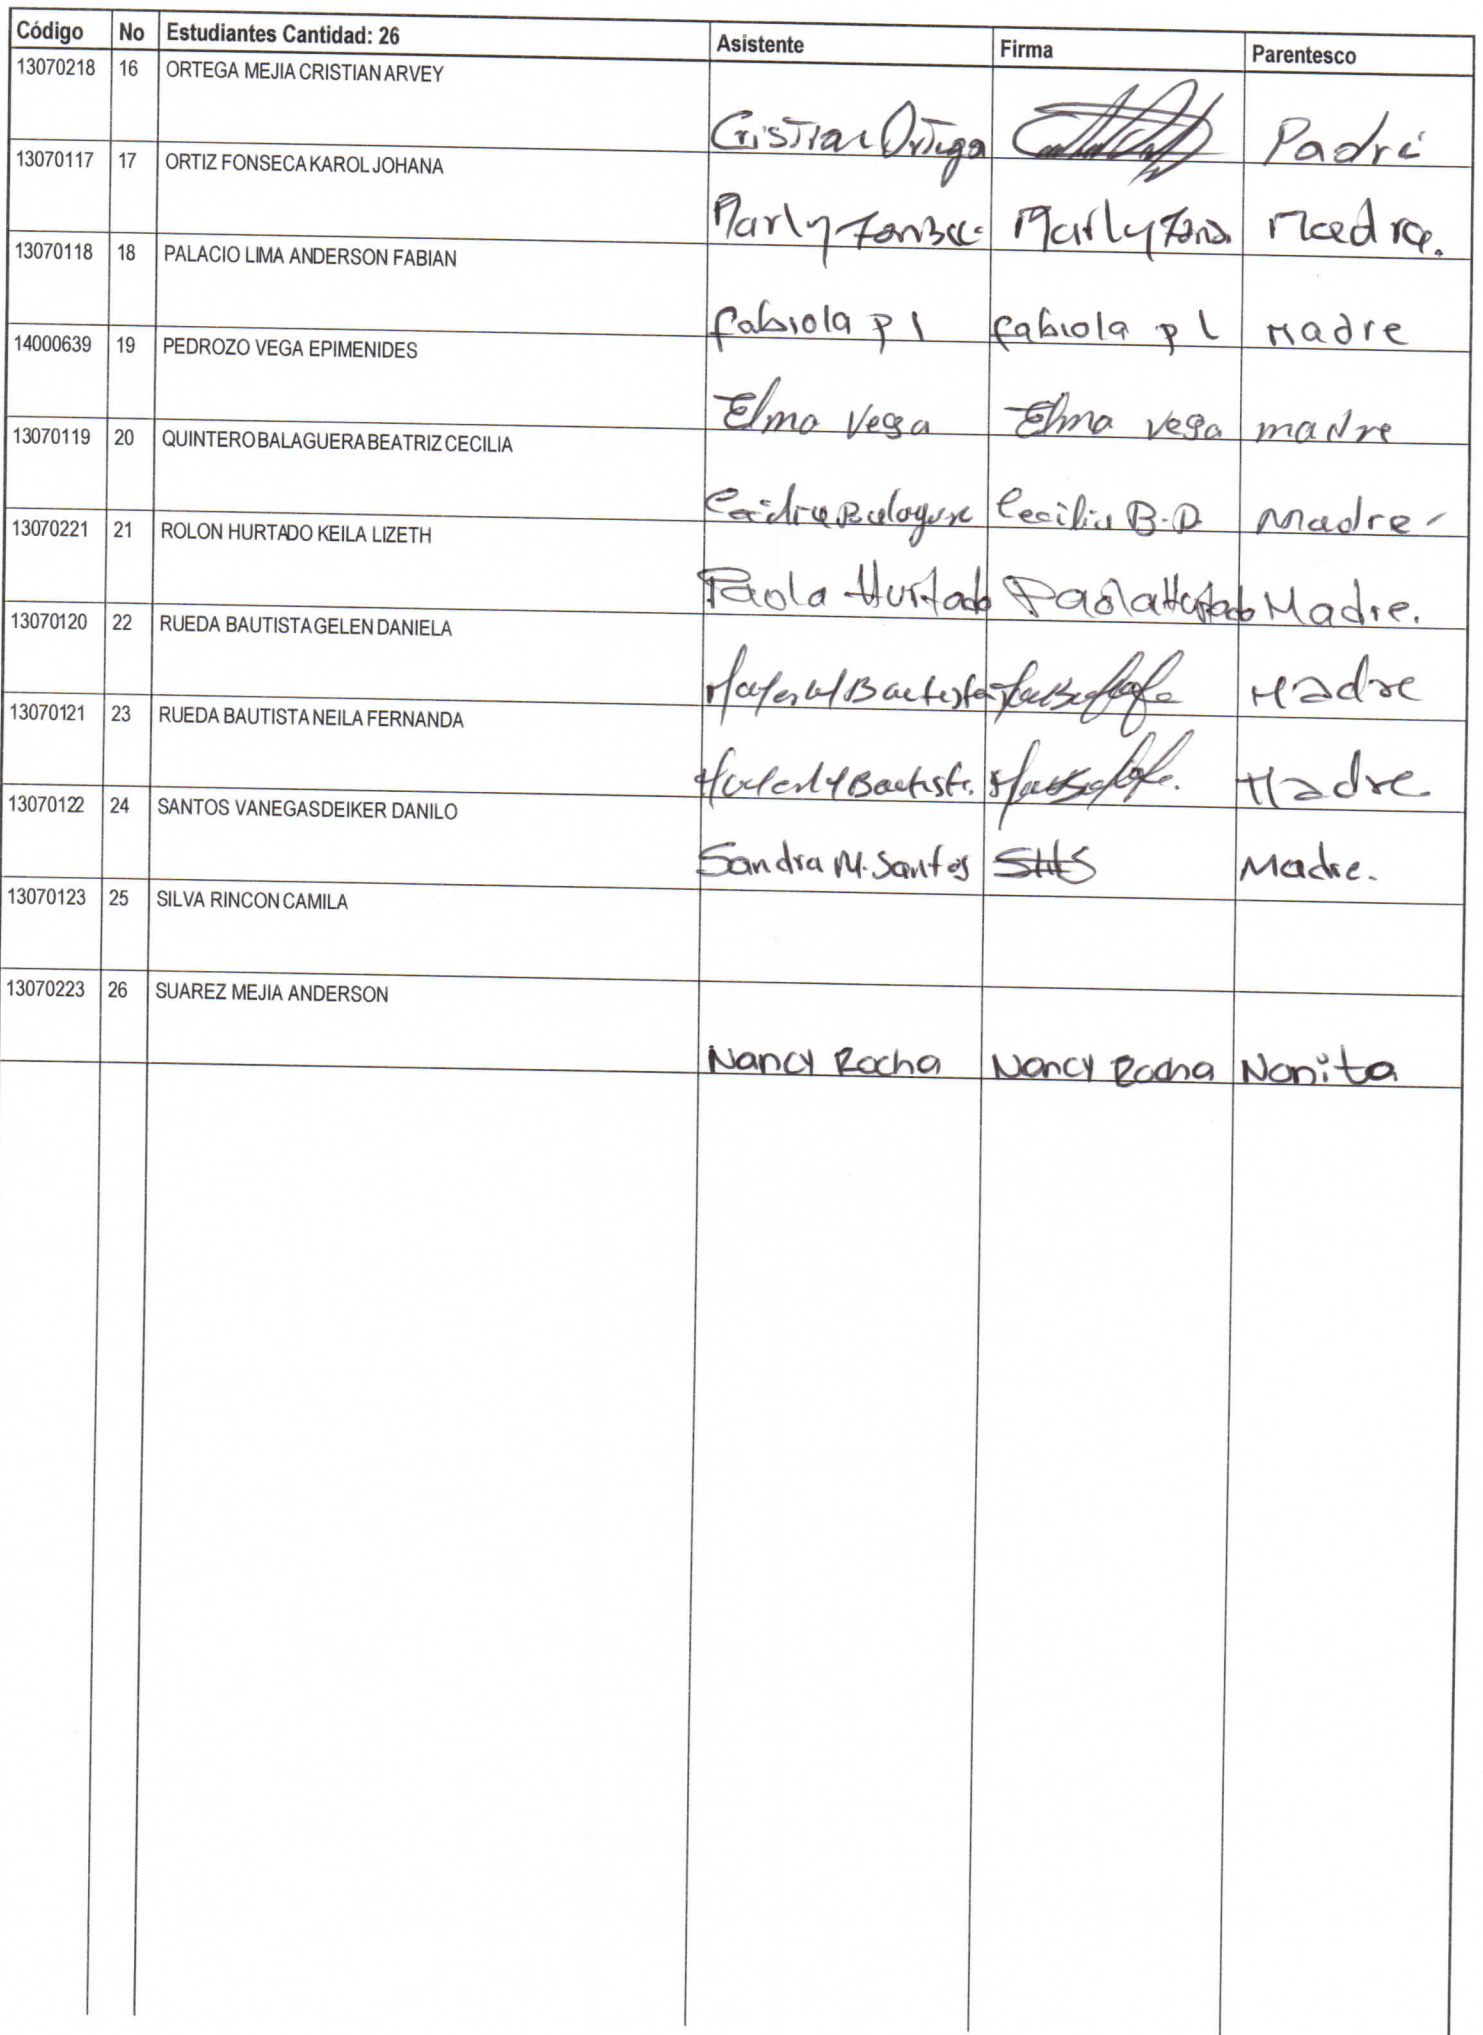 Código No Estudiantes Cantidad: 26 Asistente Firma Parentesco
13070218 16 ORTEGA MEJIA CRISTIAN ARVEY
Cristian Ortega Padre
13070117 17 ORTIZ FONSECA KAROL JOHANA
Marly Fonseca Marly Fons. Madre.
13070118 18 PALACIO LIMA ANDERSON FABIAN
fabiola p l fabiola p l Madre
14000639 19 PEDROZO VEGA EPIMENIDES
Elma Vega Elma vega madre
13070119 20 QUINTERO BALAGUERA BEATRIZ CECILIA
Cecilia Balaguera Cecilia B.D. Madre
13070221 21 ROLON HURTADO KEILA LIZETH
Paola Hurtado Paola Hurtado Madre.
13070120 22 RUEDA BAUTISTA GELEN DANIELA
Bautista Madre
13070121 23 RUEDA BAUTISTA NEILA FERNANDA
Bautista. Madre
13070122 24 SANTOS VANEGAS DEIKER DANILO
Sandra M. Santos Madre.
13070123 25 SILVA RINCON CAMILA
13070223 26 SUAREZ MEJIA ANDERSON
Nancy Rocha Nancy Rocha Nonita